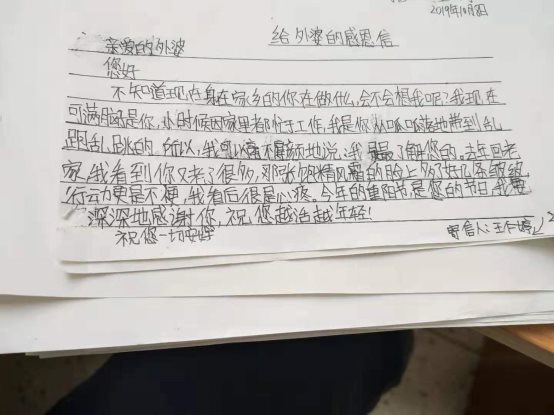 2019年10月8日
给外婆的感恩信
亲爱的外婆
您好
不知道现在身在家乡的你在做什么,会不会想我呢?我现在
可满脑还是你,小时候因家里都忙于工作,我是你从呱呱落地带到乱
跑乱跳的,所以,我可以毫不厚颜地说:我是最了解您的。去年回老
家,我看到你又老了很多,那张饱精风霜的脸上多了好几条皱纹
行动更是不便,我看后很是心疼。今年的重阳节是您的节日,我要
深深地感谢你,祝您越活越年轻!
祝您一切安好
寄信人:王